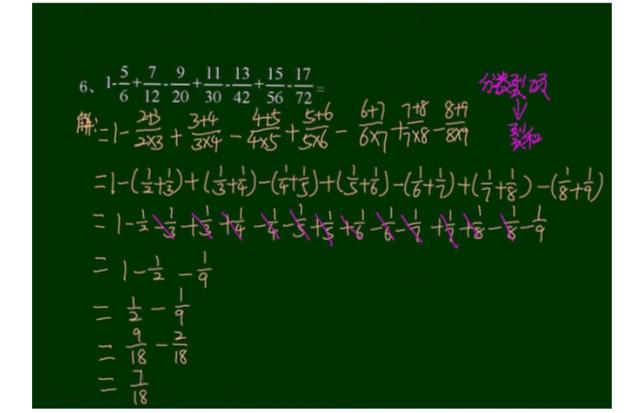 6、1-5/6+7/12-9/20+11/30-13/42+15/56-17/72=
分数裂项
↓
裂和
解:=1-2+3/2×3+3+4/3×4-4+5/4×5+5+6/5×6-6+7/6×7+7+8/7×8-8+9/8×9
=1-(1/2+1/3)+(1/3+1/4)-(1/4+1/5)+(1/5+1/6)-(1/6+1/7)+(1/7+1/8)-(1/8+1/9)
=1-1/2-1/3+1/3+1/4-1/4-1/5+1/5+1/6-1/6-1/7+1/7+1/8-1/8-1/9
=1-1/2-1/9
=1/2-1/9
=9/18-2/18
=7/18